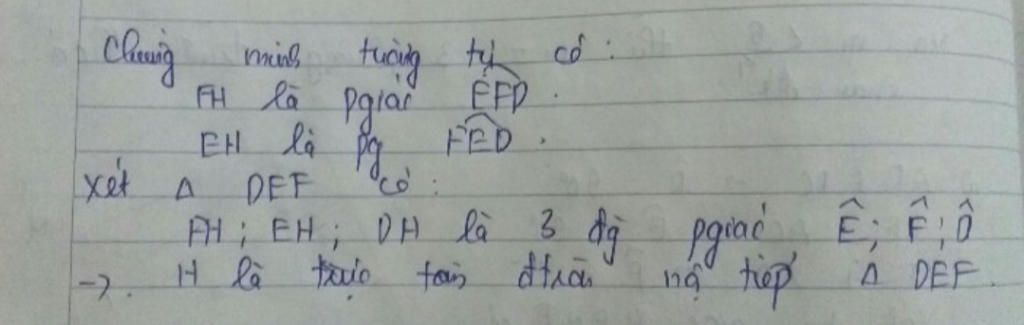 Chứng minh tương tự có :
FH là pgiác EFD .
EH là pg FED .
Xét Δ DEF có :
FH ; EH ; DH là 3 đg pgiác Ê ; F̂ ; D̂
→. H là trực tâm đtròn nộ tiếp Δ DEF .